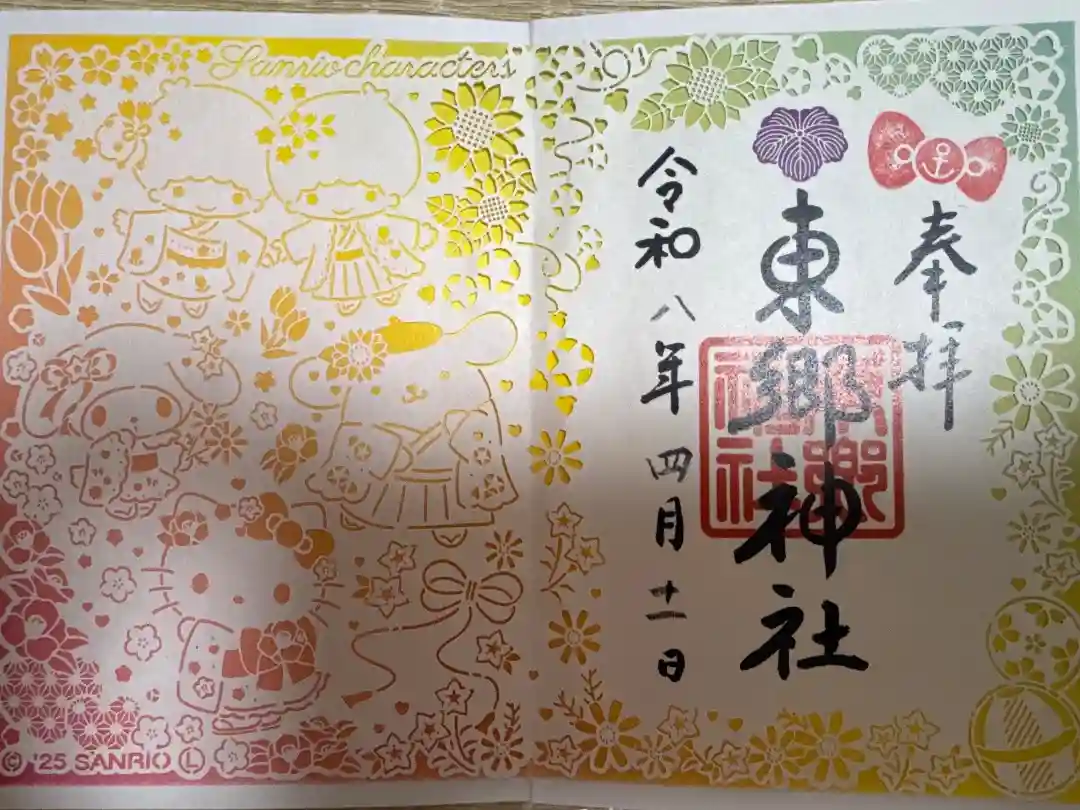 Sanrio characters
奉拝
東郷神社
東郷神社
令和八年四月十一日
© '25 SANRIO Ⓛ